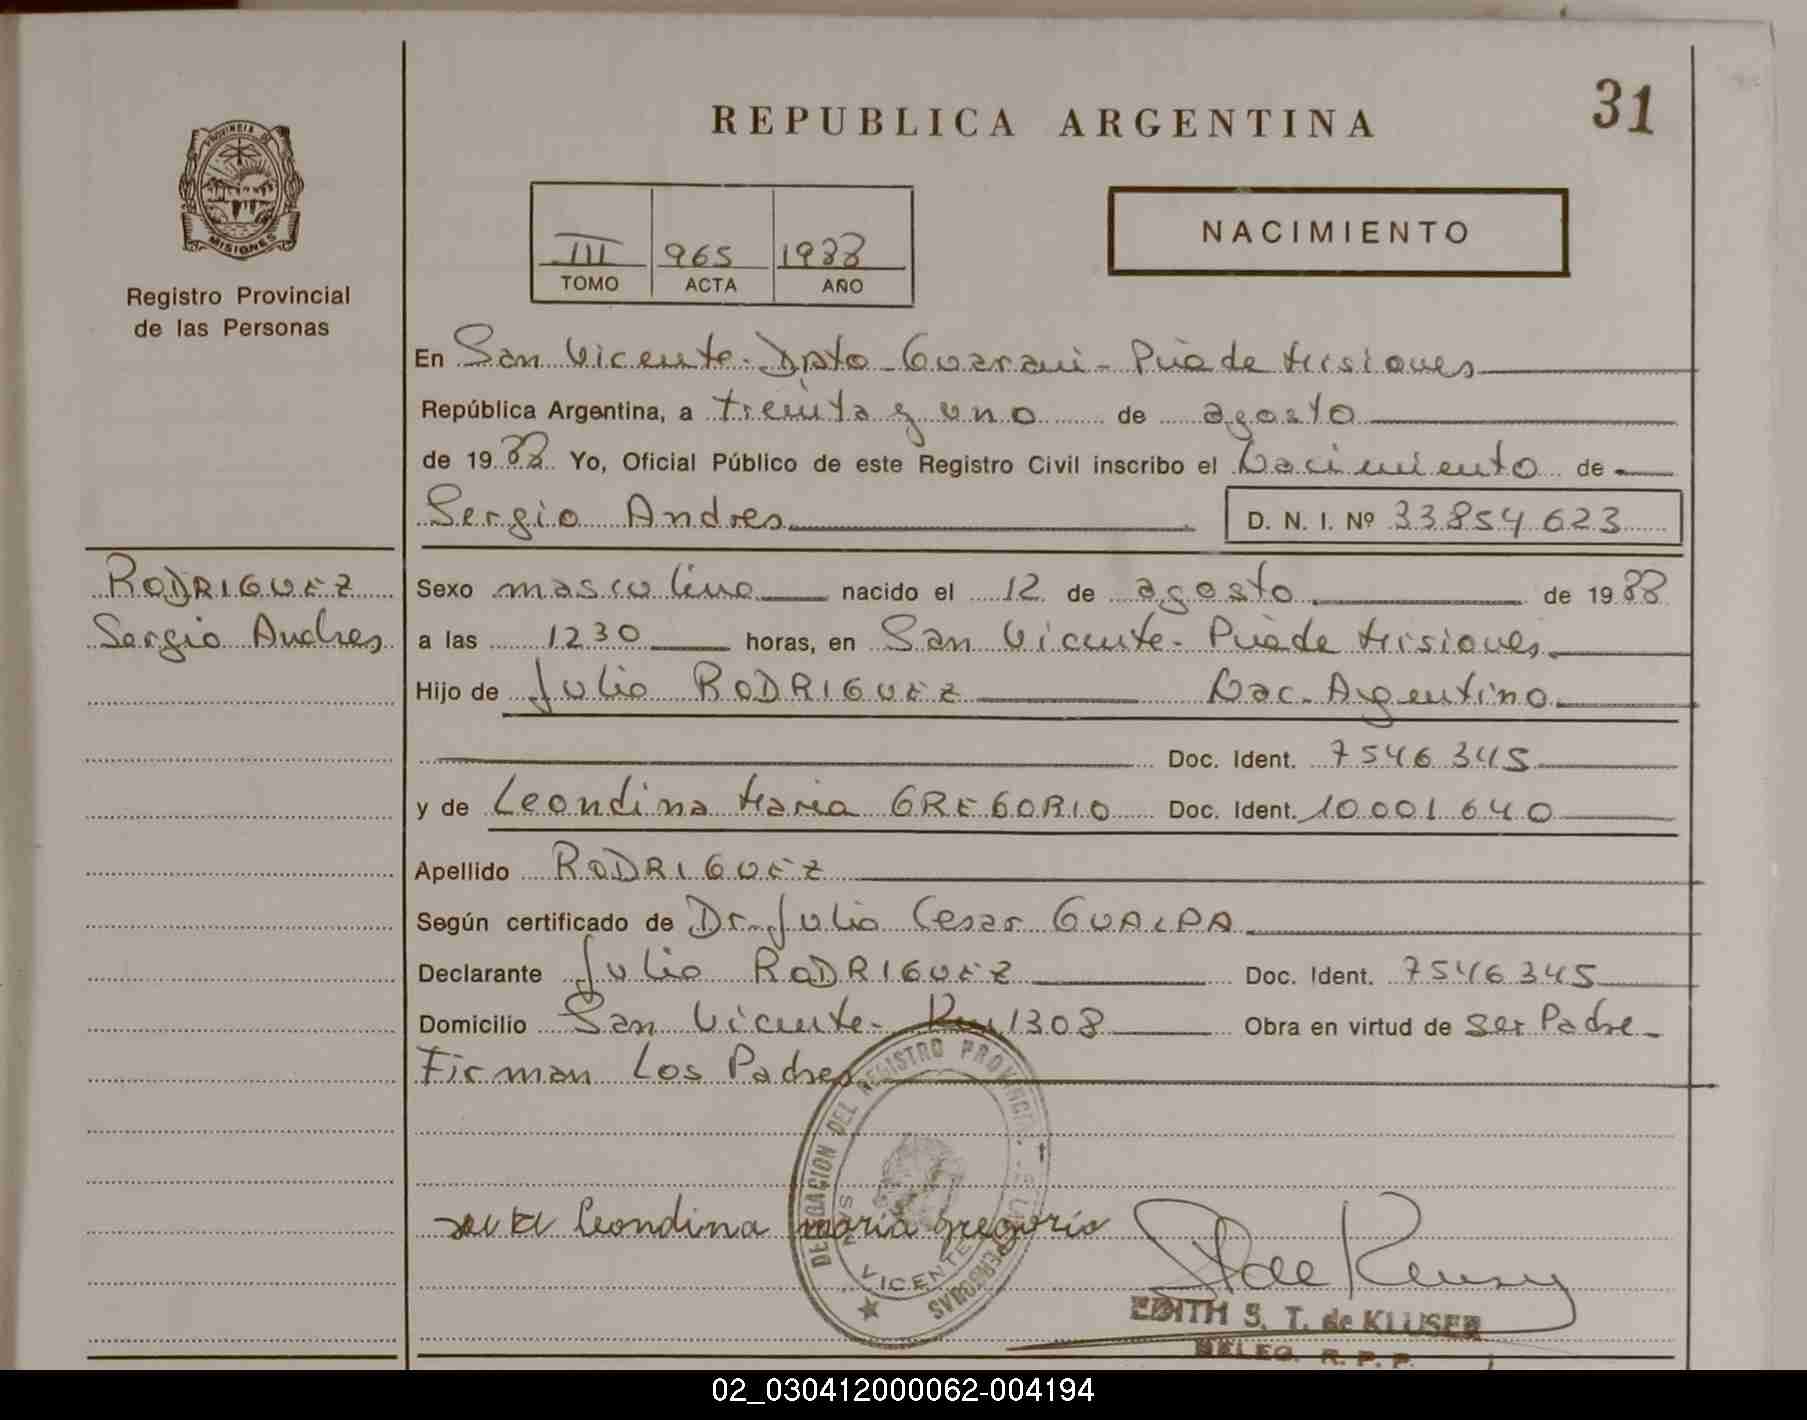 31
REPUBLICA ARGENTINA
PROVINCIA DE
MISIONES
Registro Provincial
de las Personas
NACIMIENTO
III 965 1988
TOMO ACTA AÑO
En San Vicente - Dpto Guarani - Pcia de Misiones
República Argentina, a treinta y uno de agosto
de 1988 Yo, Oficial Público de este Registro Civil inscribo el Nacimiento de
Sergio Andres D. N. I. Nº 33854623
RODRIGUEZ
Sergio Andres
Sexo masculino nacido el 12 de agosto de 1988
a las 1230 horas, en San Vicente - Pcia de Misiones
Hijo de Julio RODRIGUEZ Nac. Argentino
Doc. Ident. 7546345
y de Leondina Maria GREGORIO Doc. Ident. 10001640
Apellido RODRIGUEZ
Según certificado de Dr. Julio Cesar GUALPA
Declarante Julio RODRIGUEZ Doc. Ident. 7546345
Domicilio San Vicente - Km 1308 Obra en virtud de ser Padre -
Firman Los Padres
DELEGACION DEL REGISTRO PROVINCIAL DE LAS PERSONAS
SAN VICENTE
Leondina maria gregorio
EDITH S. T. de KLUSER
DELEG. R. P. P.
02_030412000062-004194